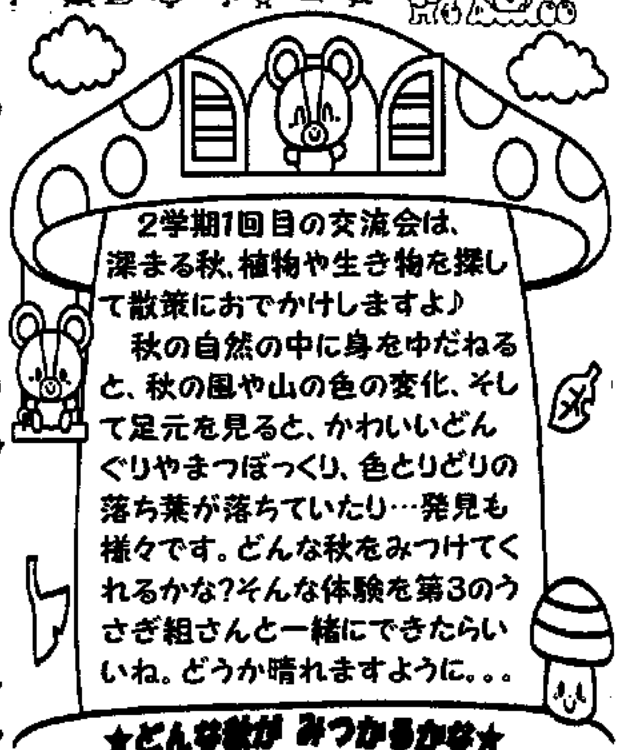 2学期1回目の交流会は、
深まる秋、植物や生き物を探し
て散策におでかけしますよ♪
秋の自然の中に身をゆだねる
と、秋の風や山の色の変化、そし
て足元を見ると、かわいいどん
ぐりやまつぼっくり、色とりどりの
落ち葉が落ちていたり…発見も
様々です。どんな秋をみつけてく
れるかな?そんな体験を第3のう
さぎ組さんと一緒にできたらい
いね。どうか晴れますように。。。
★どんな秋が みつかるかな★